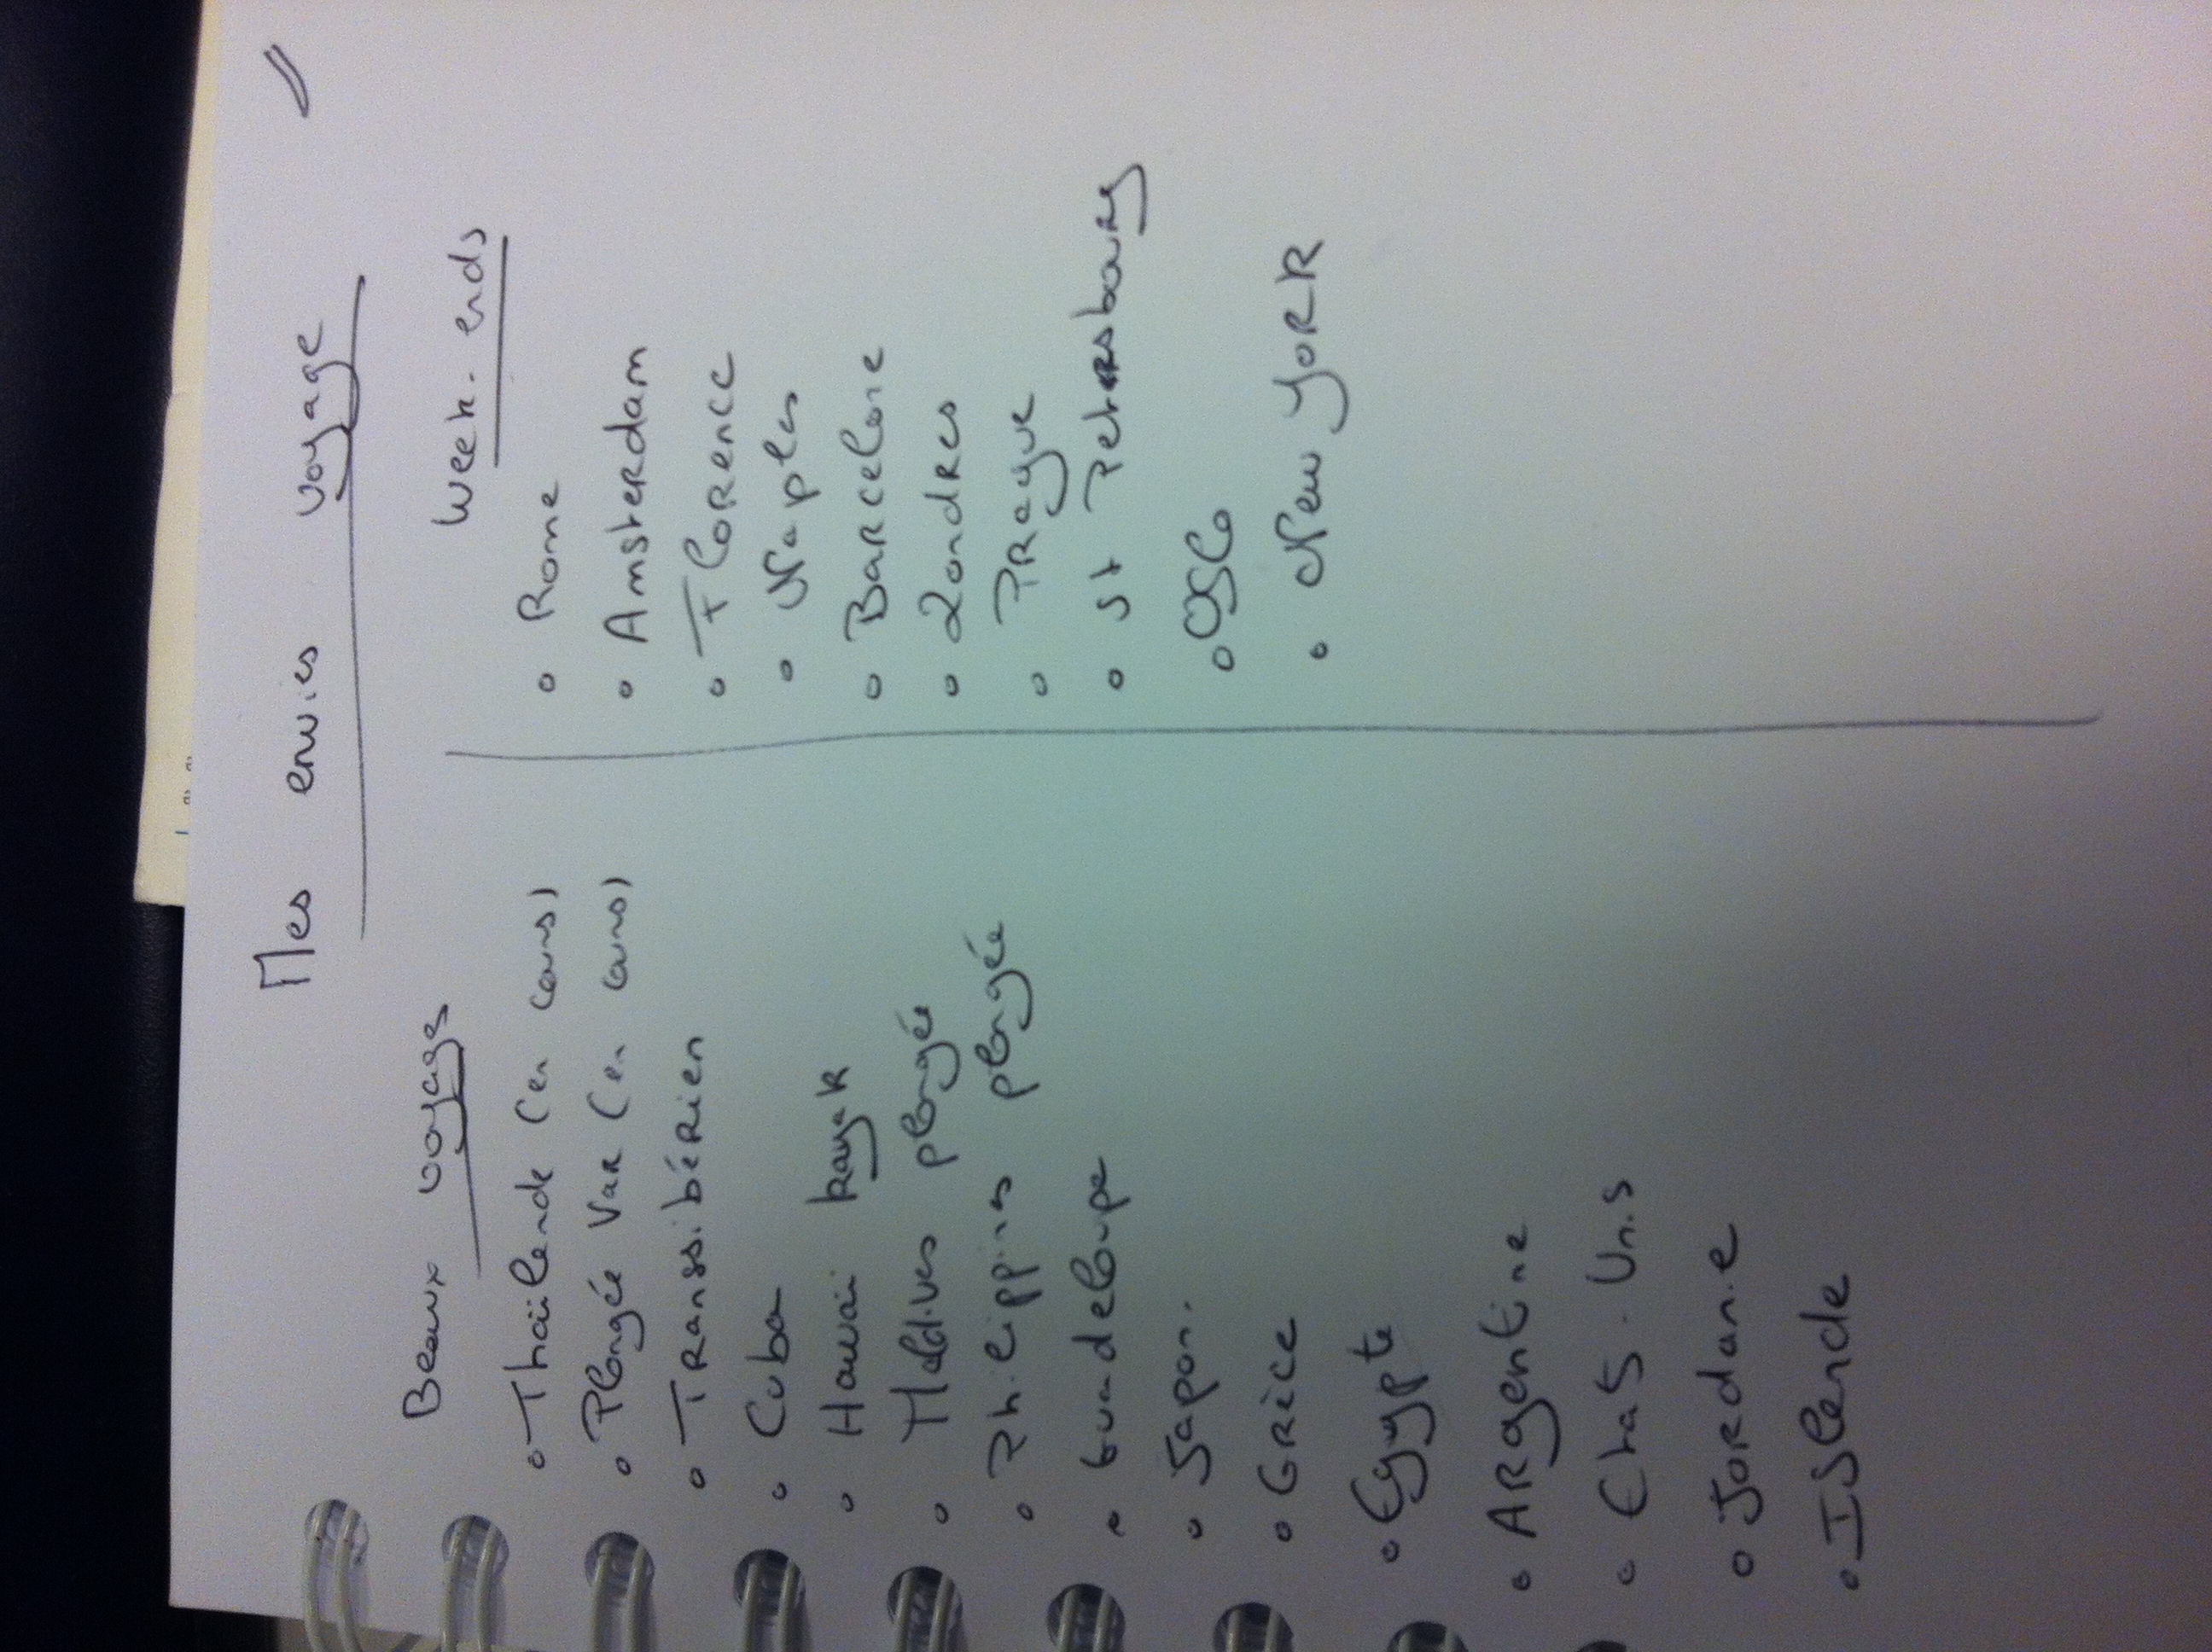 Mes envies voyage
Beaux voyages
• Thaïlande (en cours)
• Plongée Var (en cours)
• Transsibérien
• Cuba
• Hawaï kayak
• Maldives plongée
• Philippines plongée
• Guadeloupe
• Japon.
• Grèce
• Egypte
• Argentine
• Etats-Unis
• Jordanie
• Islande
Week-ends
• Rome
• Amsterdam
• Florence
• Naples
• Barcelone
• Londres
• Prague
• St Petersbourg
• Oslo
• New York